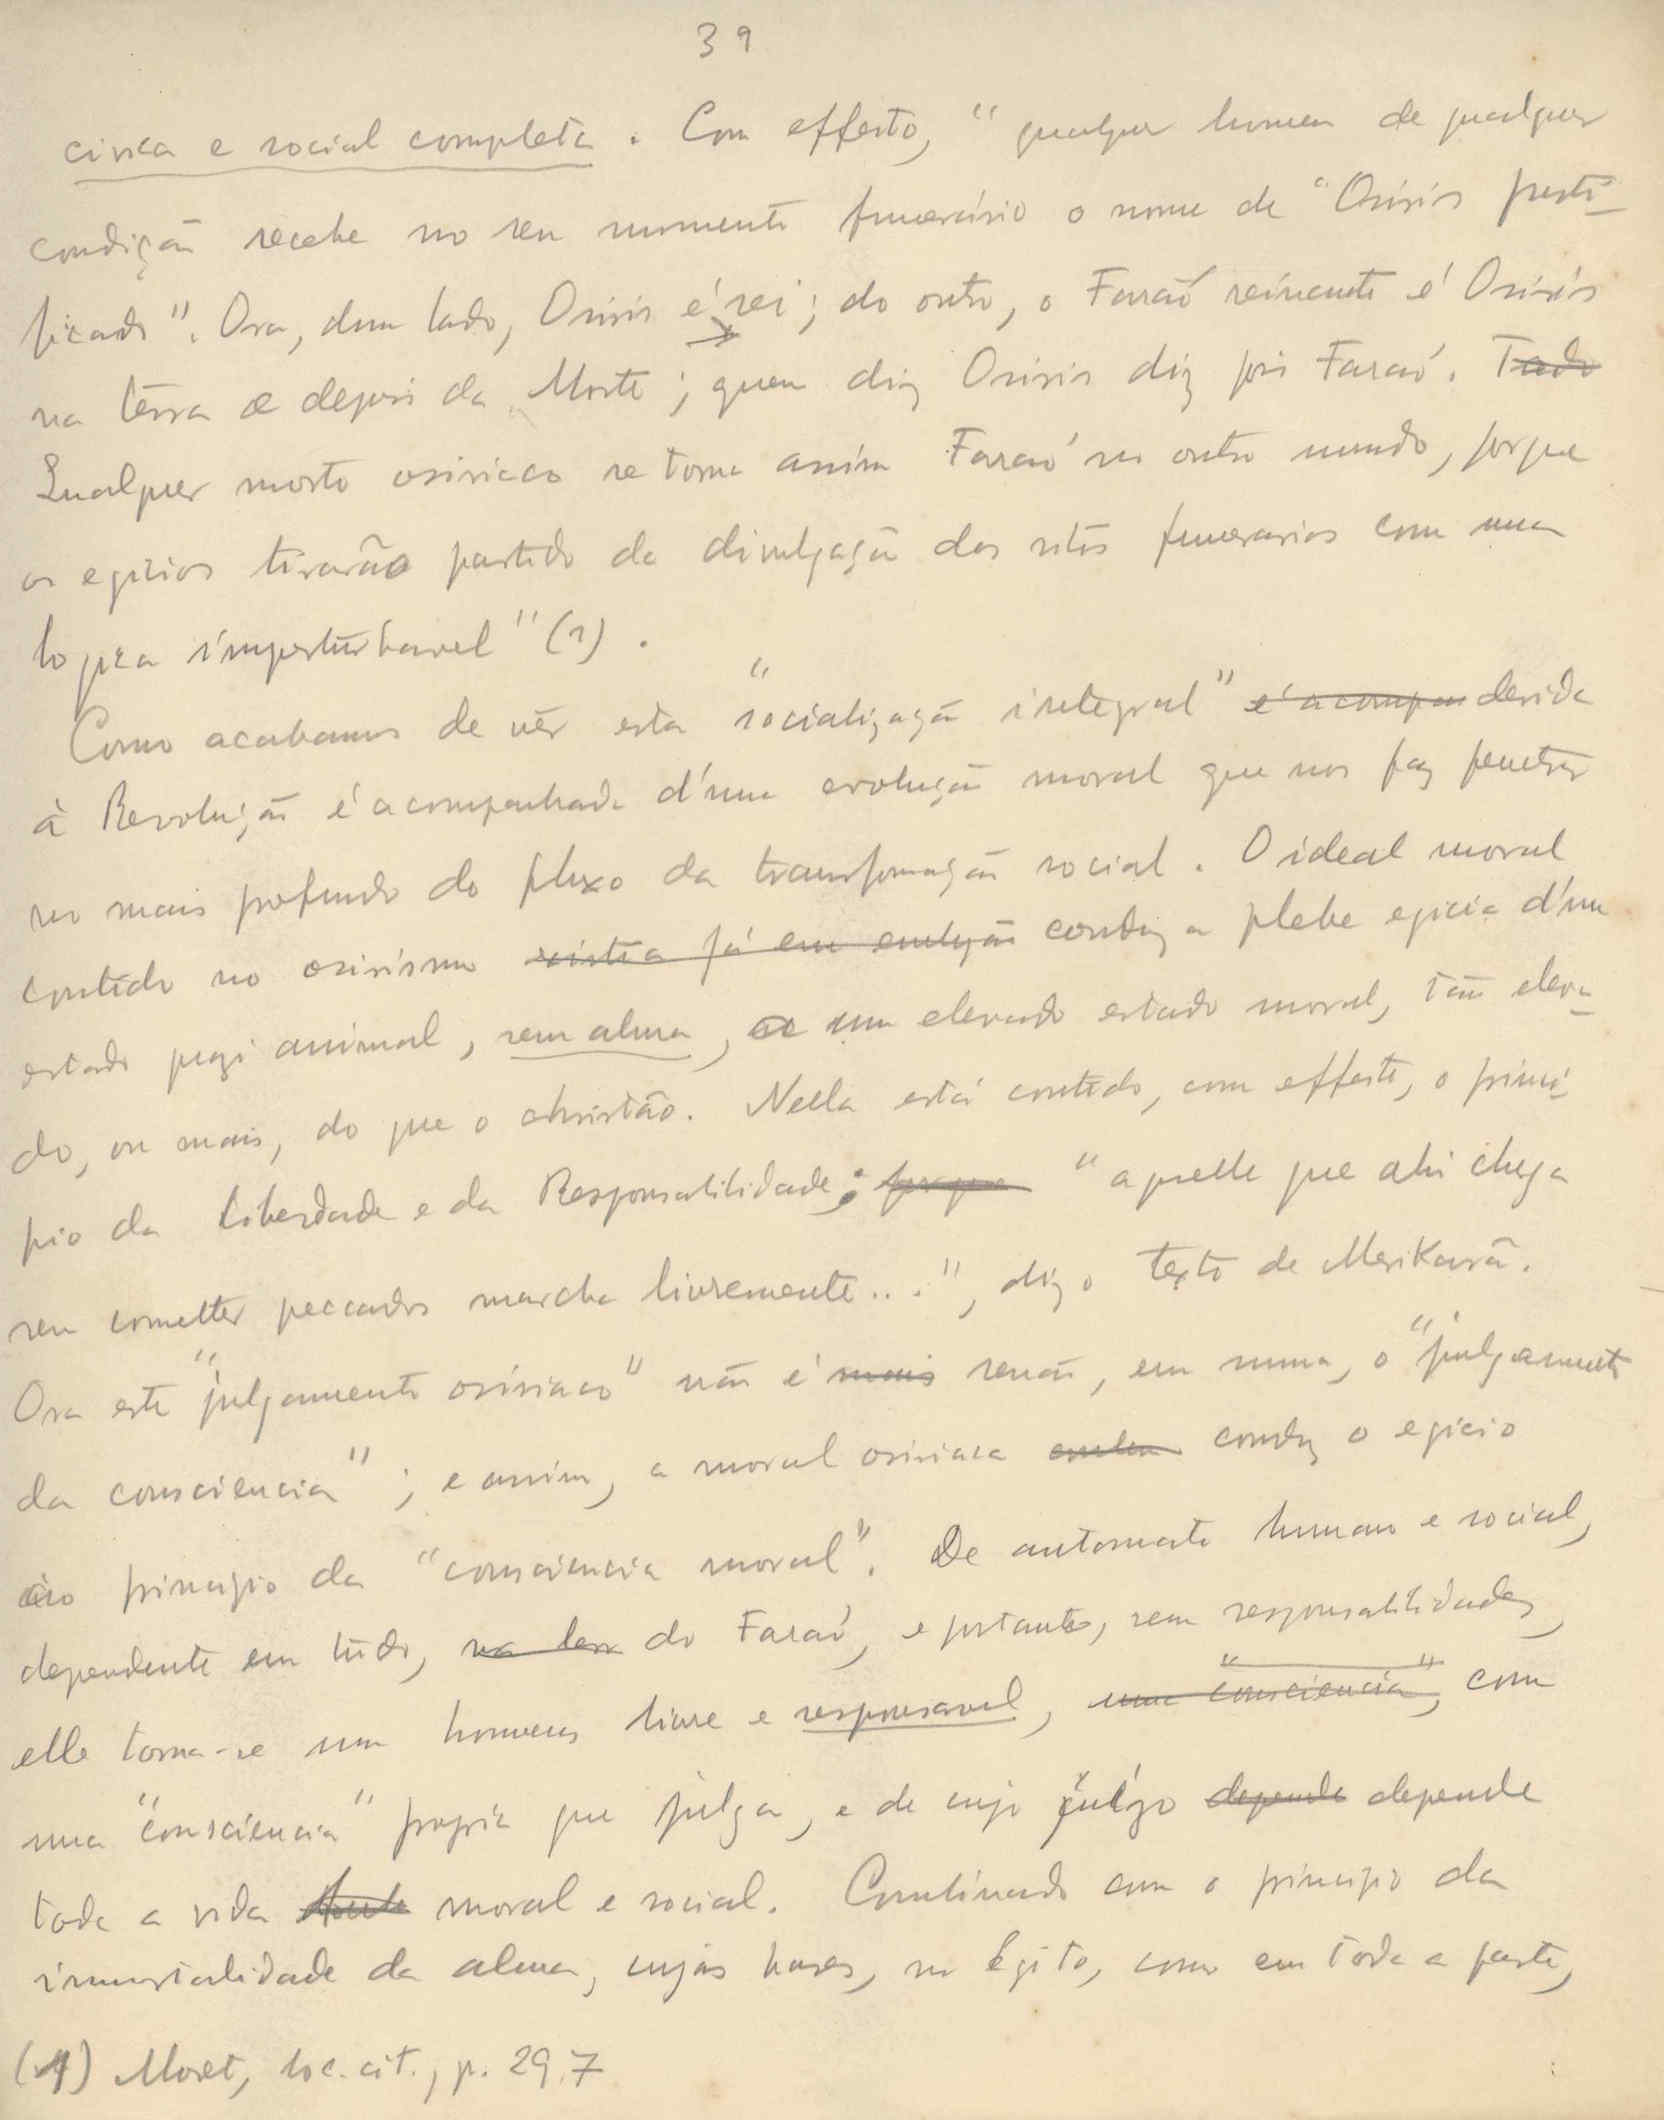 39
civica e social completa. Com effeito, "qualquer homem de qualquer
condição recebe no seu momento funerário o nome de "Osiris justi-
ficado". Ora, dum lado, Osiris é rei; do outro, o Faraó reinante é Osiris
na terra e depois da Morte; quem diz Osiris diz pois Faraó. Tado
Qualquer morto osiriaco se torna assim Faraó no outro mundo, porque
os egicios tirarão partido da divulgação dos ritos funerarios com uma
logica imperturbavel" (1).
Como acabamos de vêr esta "socialização integral" é acompan devida
à Revolução é acompanhada d'uma evolução moral que nos faz penetrar
no mais profundo do fluxo da transformação social. O ideal moral
contido no osirismo existia já em evolução conduz a plebe egicia d'um
estado quazi animal, sem alma, a um elevado estado moral, tão eleva-
do, ou mais, do que o christão. Nella está contido, com effeito, o princi-
pio da Liberdade e da Responsabilidade; porque "aquelle que ahi chega
sem cometter peccados marcha livremente...", diz o texto de Merikarâ.
Ora este "julgamento osiriaco" não é mais senão, em suma, o "julgamento
da consciencia"; e assim, a moral osiriaca conduz o egicio
ao principio da "consciencia moral". De automato humano e social,
dependente em tudo, na terra do Faraó, e portanto, sem responsabilidades,
elle torna-se um homem livre e responsavel, uma "consciencia", com
uma "consciencia" propria que julga, e de cujo julgo depende depende
toda a vida moral e social. Combinado com o principio da
immortalidade da alma, cujas bases, no Egito, como em toda a parte,
(1) Moret, loc. cit., p. 297